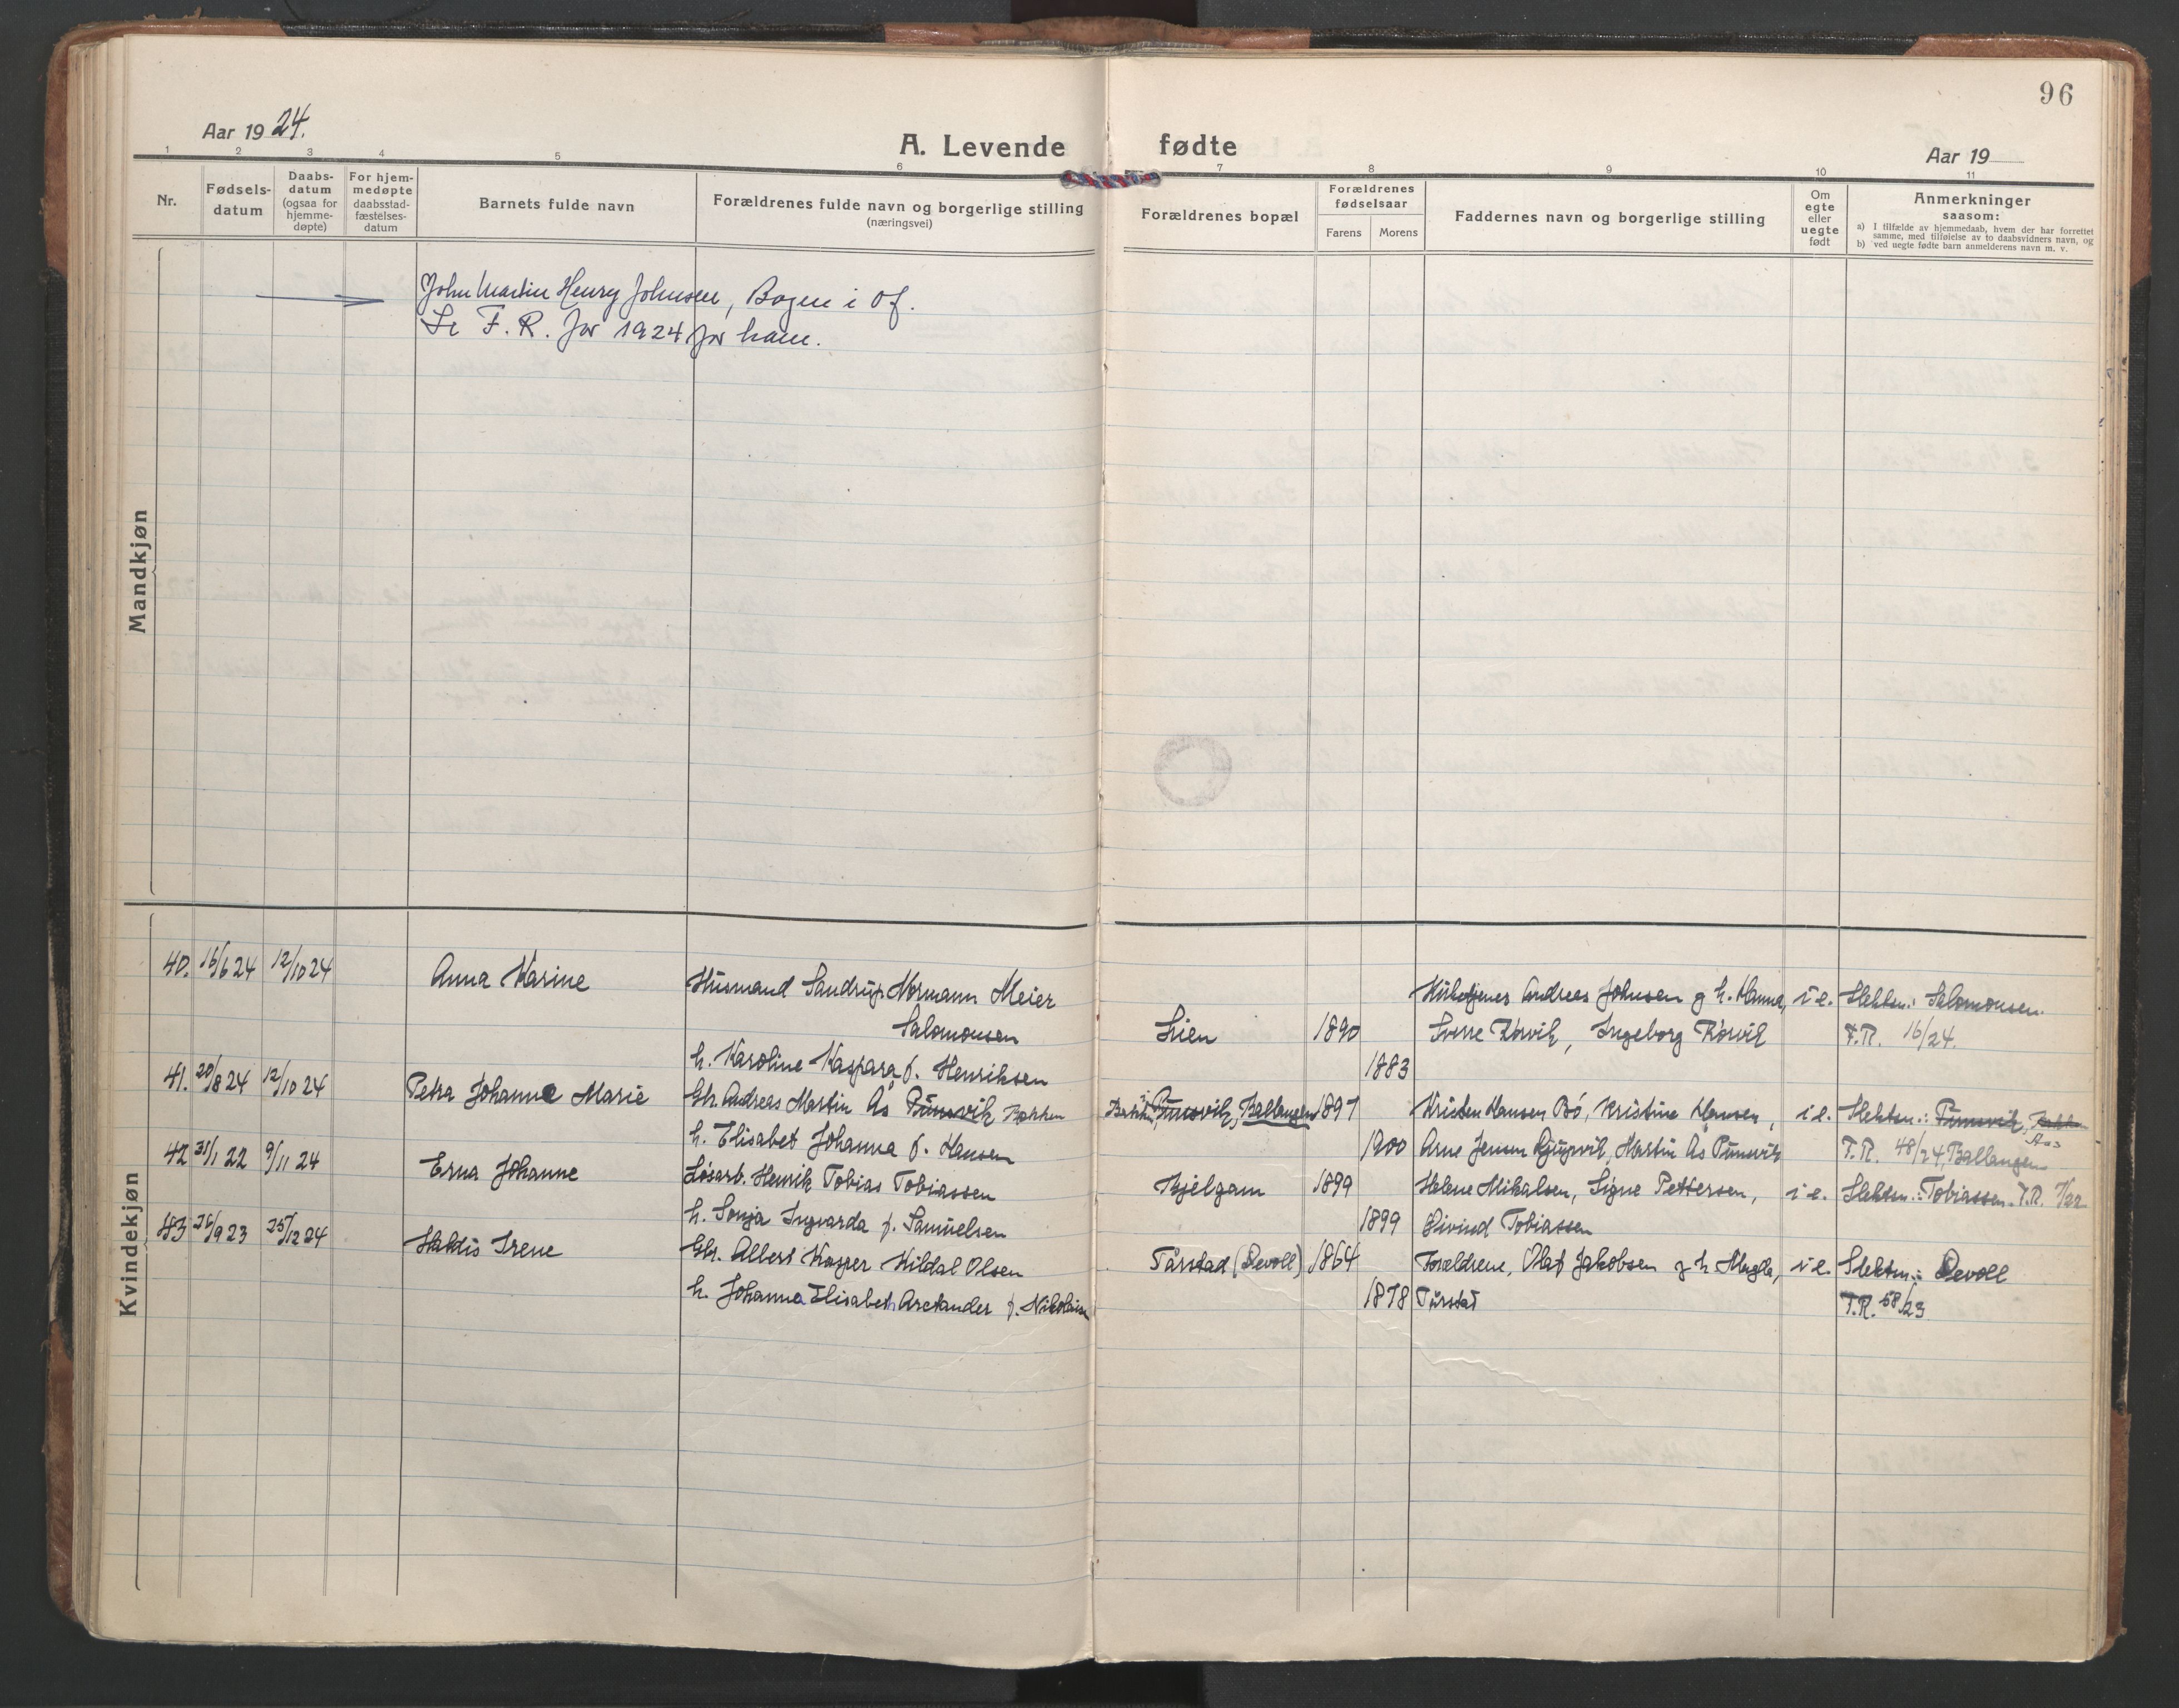 96
Aar 1924.
A. Levende fødte
Aar 19
1 2 3 4 5 6 7 8 9 10 11
Nr.
Fødsels-
datum
Daabs-
datum
(ogsaa for
hjemme-
døpte)
For hjem-
medøpte
daabsstad-
fæstelses-
datum
Barnets fulde navn
Forældrenes fulde navn og borgerlige stilling
(næringsvei)
Forældrenes bopæl
Forældrenes
fødselsaar
Farens Morens
Faddernes navn og borgerlige stilling
Om
egte
eller
uegte
født
Anmerkninger
saasom:
a) I tilfælde av hjemmedaab, hvem der har forrettet
samme, med tilføielse av to daabsvidners navn, og
b) ved uegte fødte barn anmelderens navn m. v.
Mandkjøn
John Martin Henry Johnsen, Bogen i Of.
Se F. R. for 1924 for ham.
Kvindekjøn
40. 16/6 24 12/10 24 Anna Karine Husmand Sandrup Normann Meier
Salomonsen
h. Karoline Kaspara f. Henriksen
Lien 1890
1883
Andreas Johnsen g h. Hanna,
Sverre Korvik, Ingeborg Korvik
i e. Slektsn.: Salomonsen
F.R. 16/24.
41. 20/8 24 12/10 24 Petra Johanne Marie Gbr. Andreas Martin Ås Bakken
h. Elisabet Johanna f. Hansen
Ballangen 1897
1900
Kristen Hansen Bø, Kristine Hansen,
Arne Jensen Martin Ås
i e. Slektsn.:
Aas
F.R. 48/24, Ballangen
42 31/1 22 9/11 24 Erna Johanne Løsarb. Henrik Tobias Tobiassen
h. Sonja Ingvarda f. Samuelsen
Kjelgam 1899
1899
Helene Mikalsen, Signe Pettersen,
Eivind Tobiassen
i e. Slektsn.: Tobiassen. F.R.
43 26/9 23 25/12 24 Haldis Irene Gbr. Albert Kasper Kildal Olsen
h. Johanna Elisabeth Arctander f. Nikolaisen
Tårstad (Devoll) 1864
1878
Forældrene, Olaf Jakobsen g h Magda,
Tårstad
i e. Slektsn.: Devoll
F.R. 58/23